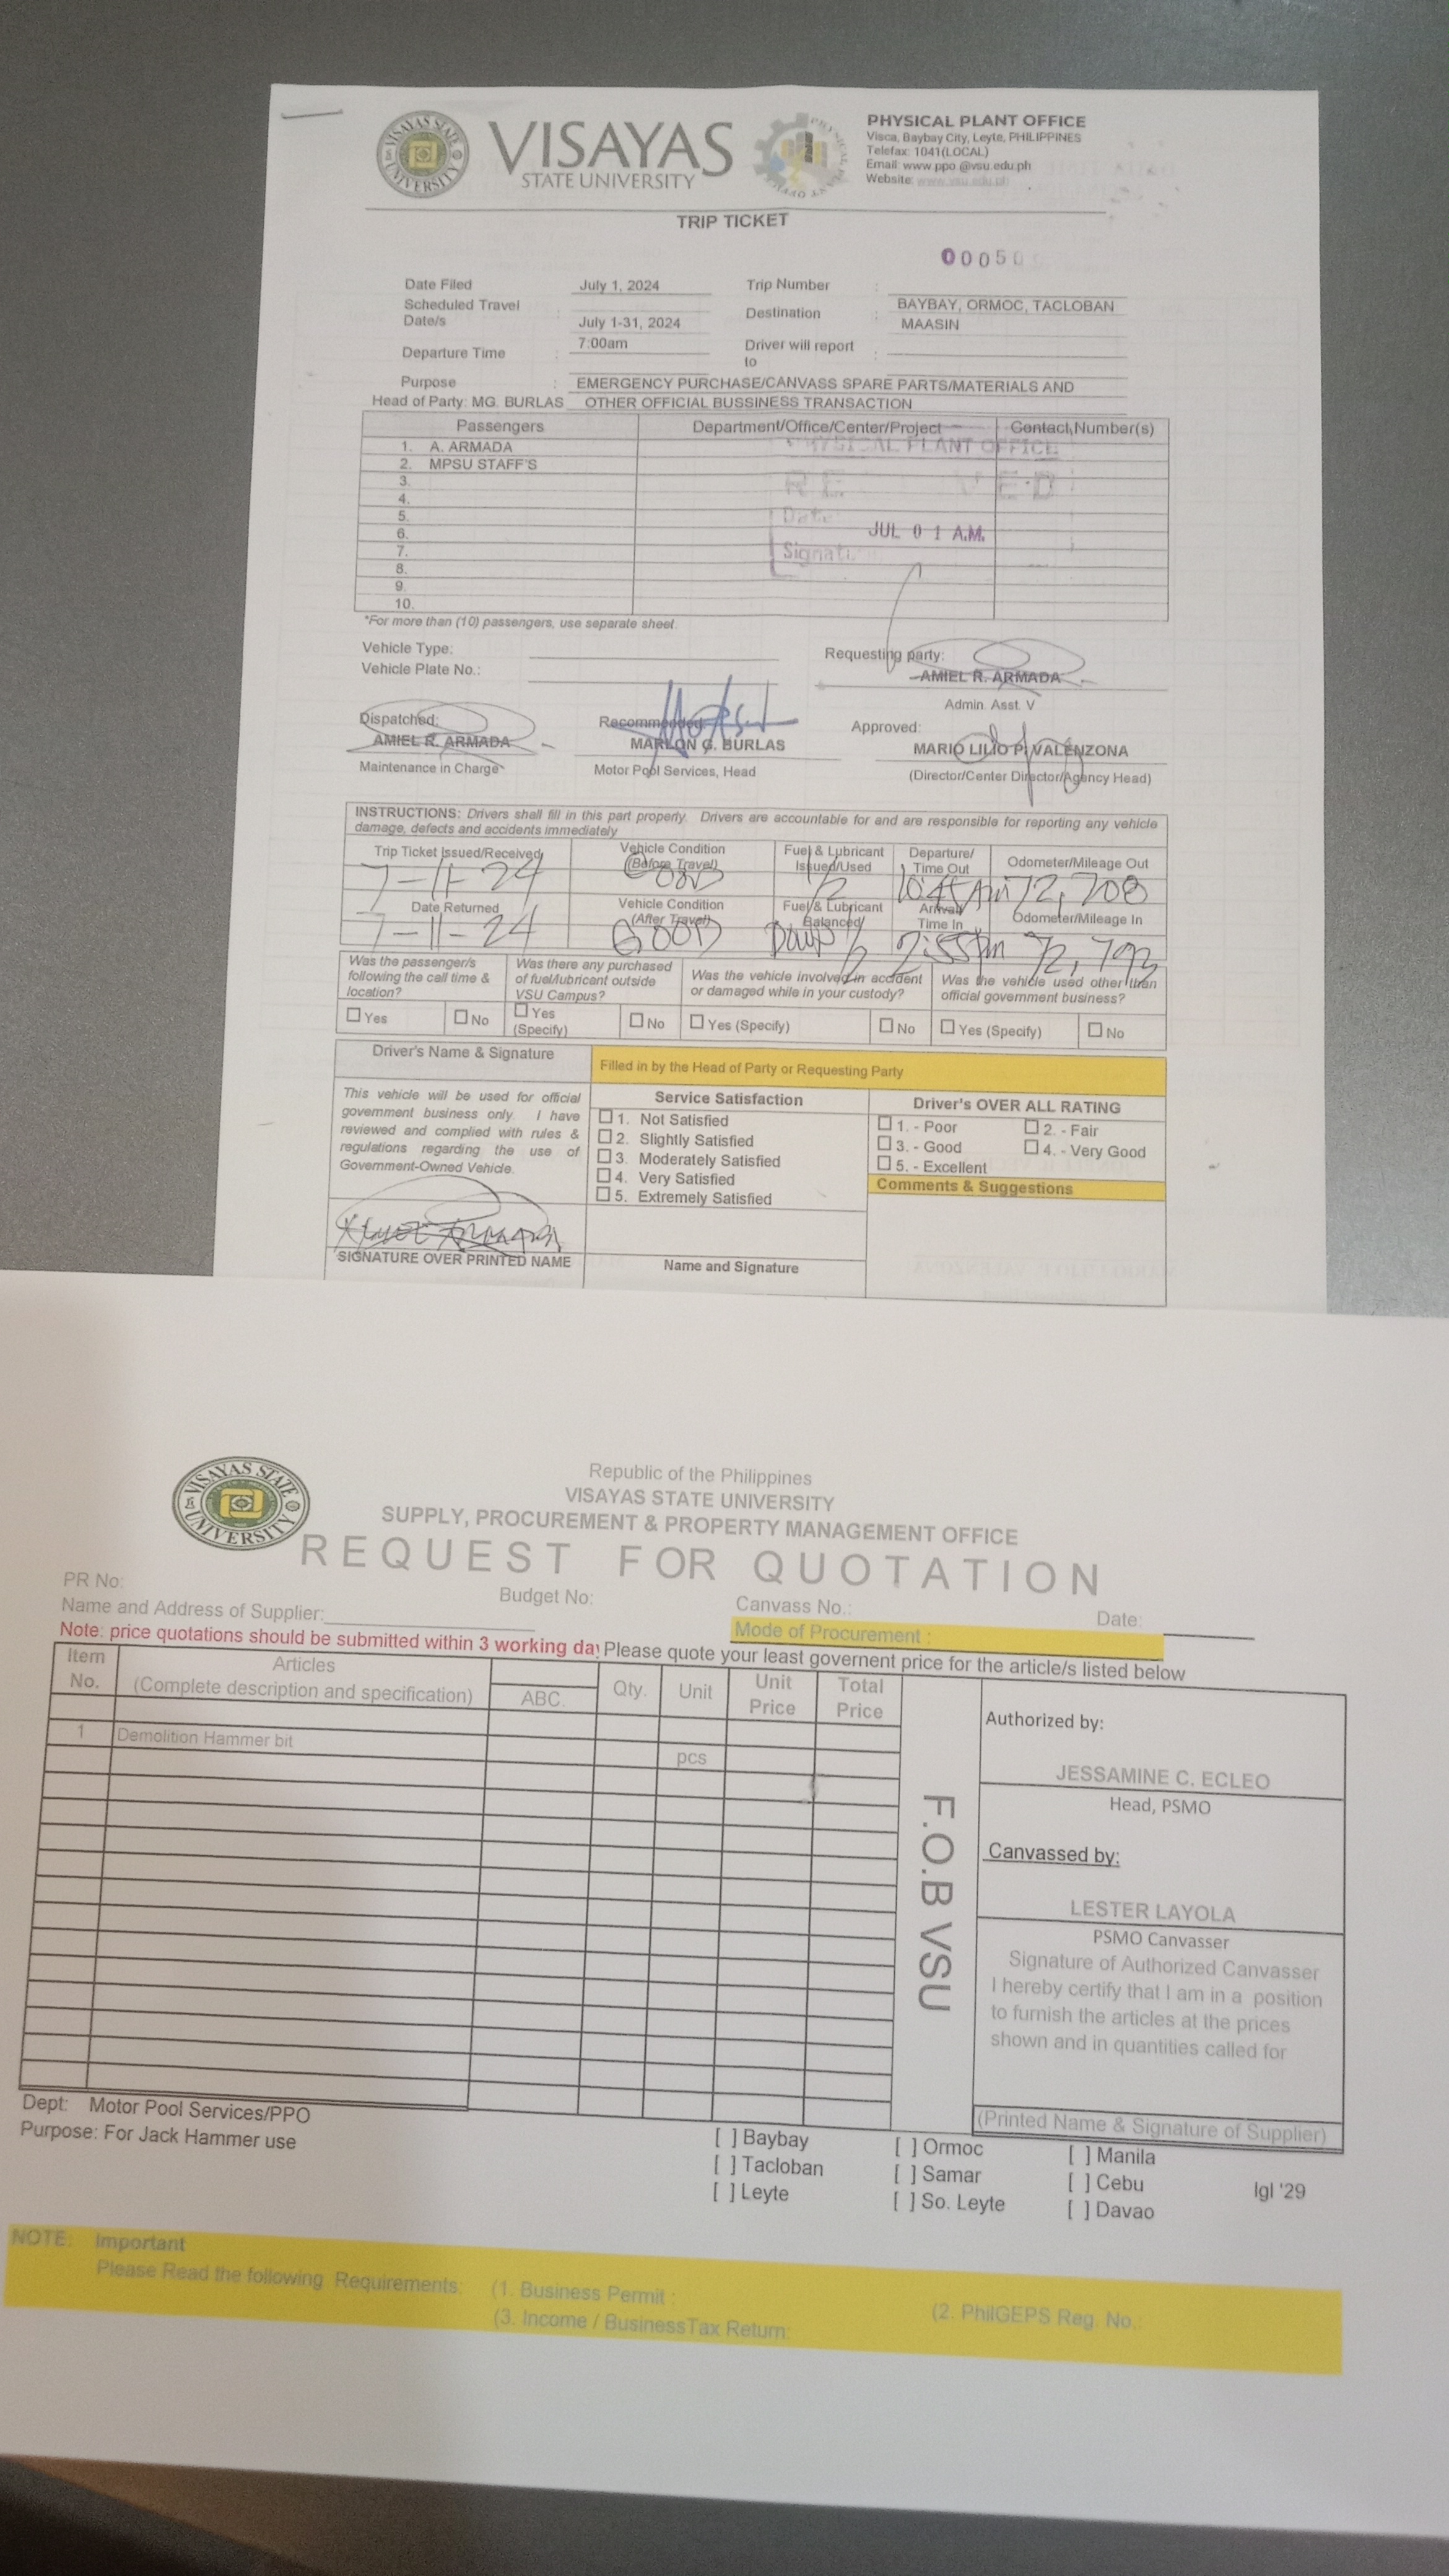 VISAYAS STATE UNIVERSITY
VISAYAS
STATE UNIVERSITY
PHYSICAL PLANT OFFICE
Visca, Baybay City, Leyte, PHILIPPINES
Telefax: 1041(LOCAL)
Email: www.ppo.@vsu.edu.ph
Website: www.vsu.edu.ph
TRIP TICKET
00050
Date Filed July 1, 2024 Trip Number :
Scheduled Travel Date/s : July 1-31, 2024 Destination : BAYBAY, ORMOC, TACLOBAN
MAASIN
Departure Time : 7:00am Driver will report to :
Purpose : EMERGENCY PURCHASE/CANVASS SPARE PARTS/MATERIALS AND
Head of Party: MG. BURLAS OTHER OFFICIAL BUSSINESS TRANSACTION
Passengers Department/Office/Center/Project Contact Number(s)
1. A. ARMADA
2. MPSU STAFF'S
3.
4.
5.
6.
7.
8.
9.
10.
PHYSICAL PLANT OFFICE
Date
JUL 0 1 A.M.
*For more than (10) passengers, use separate sheet.
Vehicle Type:
Vehicle Plate No.:
Requesting party:
AMIEL R. ARMADA
Admin. Asst. V
Dispatched: Recommended: Approved:
AMIEL R. ARMADA MARLON G. BURLAS MARIO LILIO P. VALENZONA
Maintenance in Charge Motor Pool Services, Head (Director/Center Director/Agency Head)
INSTRUCTIONS: Drivers shall fill in this part properly. Drivers are accountable for and are responsible for reporting any vehicle
damage, defects and accidents immediately
Trip Ticket Issued/Received Vehicle Condition (Before Travel) Fuel & Lubricant Issued/Used Departure/ Time Out Odometer/Mileage Out
7-11-24 GOOD 1/2 10:45 AM 72,708
Date Returned Vehicle Condition (After Travel) Fuel & Lubricant Balanced/ Arrival/ Time In Odometer/Mileage In
7-11-24 GOOD 1/2 2:55pm 72,793
Was the passenger/s following the call time & location? Was there any purchased of fuel/lubricant outside VSU Campus? Was the vehicle involved in accident or damaged while in your custody? Was the vehicle used other than official government business?
Yes No Yes (Specify) No Yes (Specify) No Yes (Specify) No
Driver's Name & Signature
Filled in by the Head of Party or Requesting Party
This vehicle will be used for official
government business only. I have
reviewed and complied with rules &
regulations regarding the use of
Government-Owned Vehicle.
Service Satisfaction
1. Not Satisfied
2. Slightly Satisfied
3. Moderately Satisfied
4. Very Satisfied
5. Extremely Satisfied
Driver's OVER ALL RATING
1. - Poor 2. - Fair
3. - Good 4. - Very Good
5. - Excellent
Comments & Suggestions
SIGNATURE OVER PRINTED NAME
Name and Signature
VISAYAS STATE UNIVERSITY
Republic of the Philippines
VISAYAS STATE UNIVERSITY
SUPPLY, PROCUREMENT & PROPERTY MANAGEMENT OFFICE
REQUEST FOR QUOTATION
PR No: Budget No: Canvass No.: Date:
Name and Address of Supplier:
Mode of Procurement :
Note: price quotations should be submitted within 3 working da Please quote your least governent price for the article/s listed below
Item No. Articles (Complete description and specification) ABC. Qty. Unit Unit Price Total Price
1 Demolition Hammer bit pcs
F.O.B VSU
Authorized by:
JESSAMINE C. ECLEO
Head, PSMO
Canvassed by:
LESTER LAYOLA
PSMO Canvasser
Signature of Authorized Canvasser
I hereby certify that I am in a position
to furnish the articles at the prices
shown and in quantities called for
(Printed Name & Signature of Supplier)
Dept: Motor Pool Services/PPO
Purpose: For Jack Hammer use
[ ] Baybay [ ] Ormoc [ ] Manila
[ ] Tacloban [ ] Samar [ ] Cebu
[ ] Leyte [ ] So. Leyte [ ] Davao
lgl '29
NOTE: Important
Please Read the following Requirements: (1. Business Permit : (2. PhilGEPS Reg. No.:
(3. Income / BusinessTax Return: